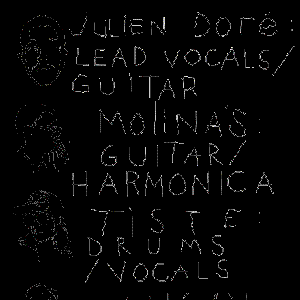 JULIEN DORÉ:
LEAD VOCALS/
GUITAR
MOLINAS:
GUITAR/
HARMONICA
TISTE:
DRUMS
/VOCALS